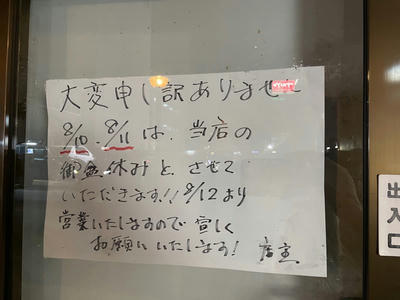 大変申し訳ありません
8/10. 8/11 は、当店の
御盆休みと、させて
いただきます!! 8/12より
営業いたしますので宜しく
お願いいたします! 店主
出入口